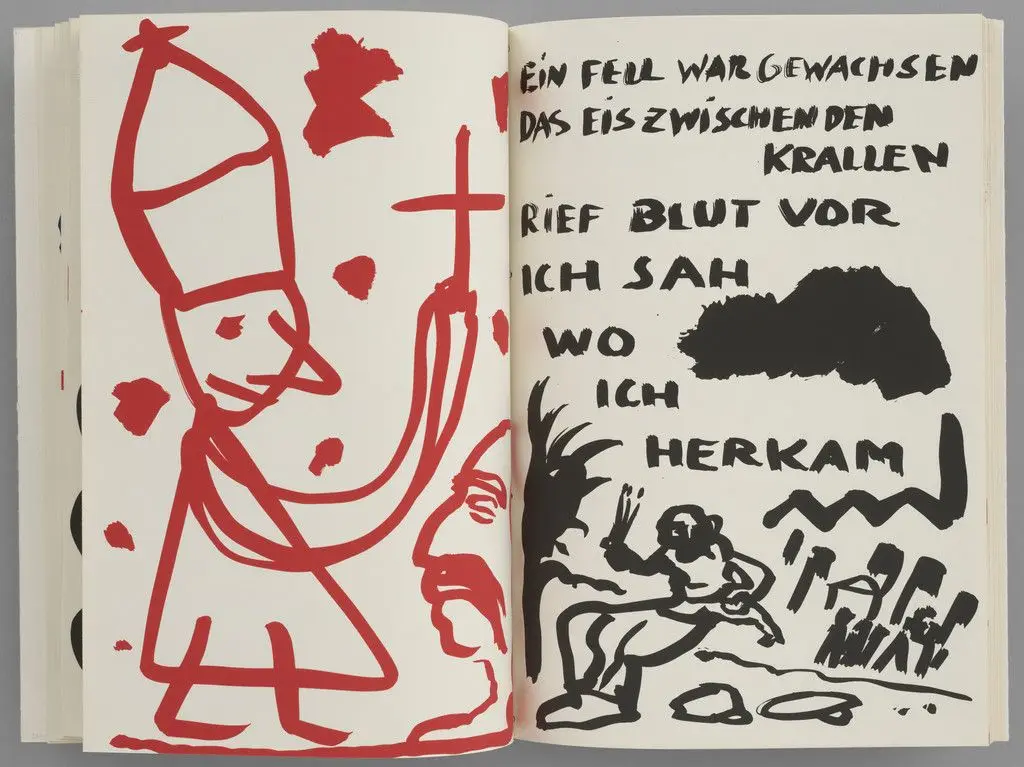 EIN FELL WAR GEWACHSEN
DAS EIS ZWISCHEN DEN
KRALLEN
RIEF BLUT VOR
ICH SAH
WO
ICH
HERKAM